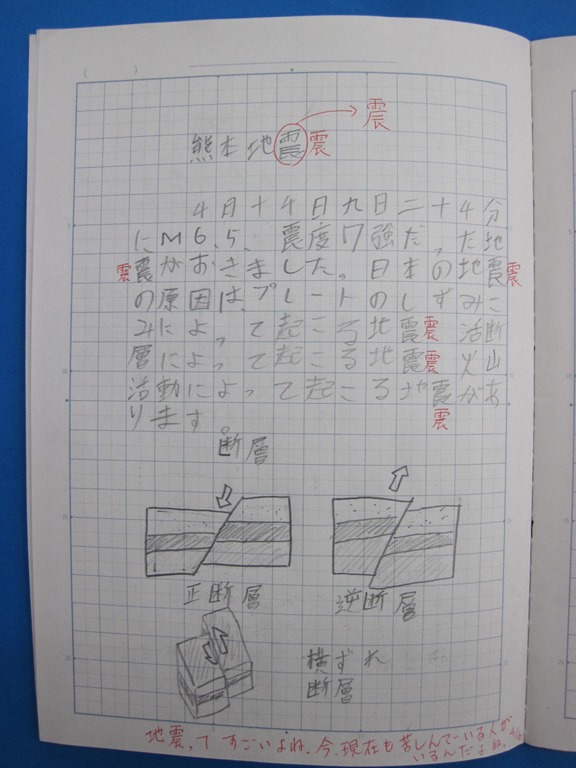 (　　)
震
熊本地震震
4月十4日九日二十4分
にM6.5、震度7強だった地
震震がおきました。日本の地震震
の原因は、プレートのしずみこ
みによって起こる地震震活断
層によって起こる地震震火山
活動によって起こる地震があ
ります。震
断層
正断層 逆断層
横ずれ
断層
地震ってすごいよね。今、現在も苦しんでいる人が
いるんだよね。